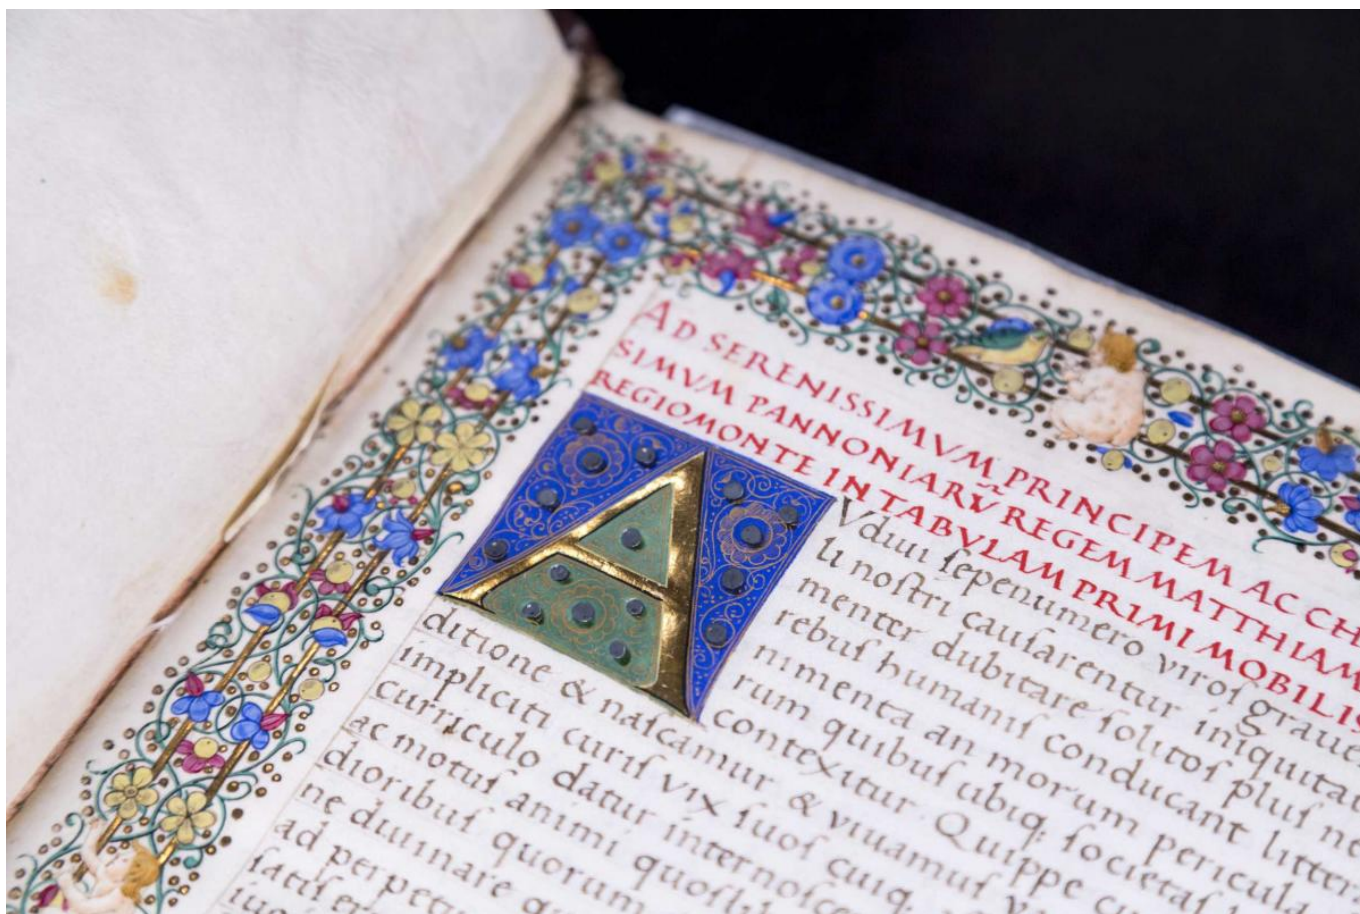 AD SERENISSIMVM PRINCIPEM AC CH
SIMVM PANNONIARŪ REGEM MATTHIAM
REGIOMONTE IN TABVLAM PRIMI MOBILIS
A
Vdiui sepenumero viros graue
li nostri causarentur iniquitat
menter dubitare solitos plus ne
rebus humanis conducant litter
nimenta an morum pericula
rum quibus ubiq. societas
contexitur. Quippe cu
ditione & nascamur & viuamus
impliciti curis vix suos cuiq.
curriculo datur internosce
ac motus animi quos
dioribus quorum
ne diuinare
ad perpetu
satis